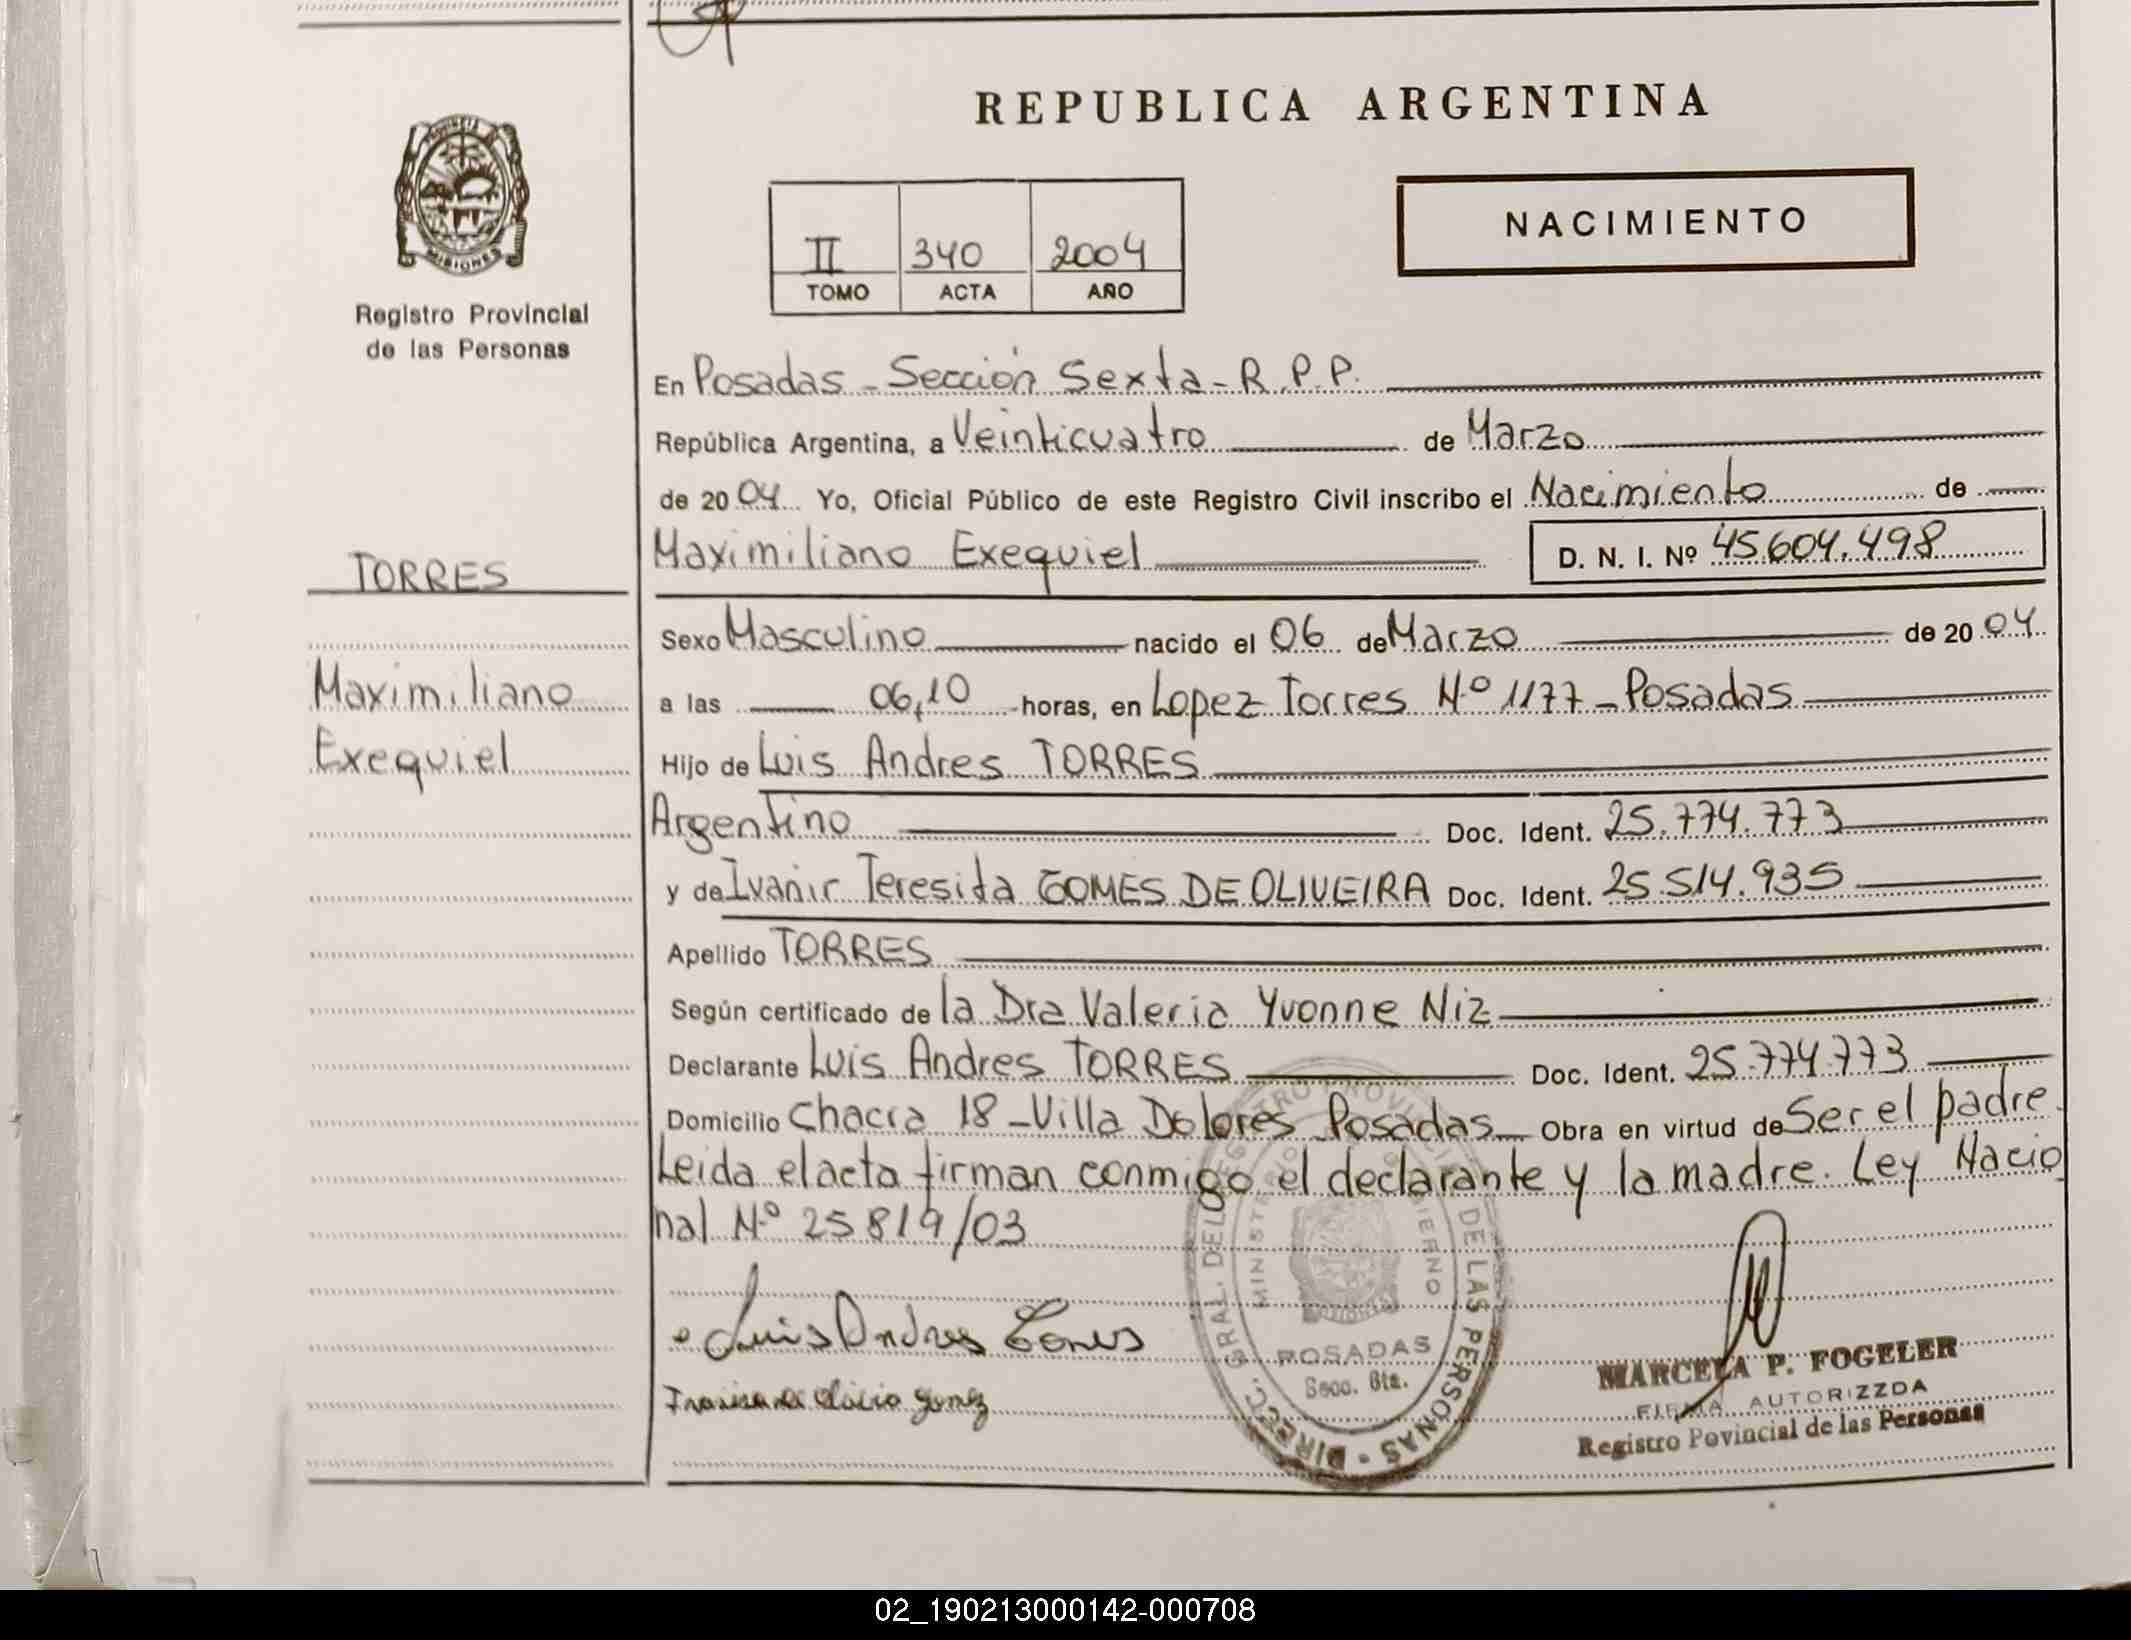 REPUBLICA ARGENTINA
PROVINCIA DE
MISIONES
Registro Provincial
de las Personas
NACIMIENTO
II 340 2004
TOMO ACTA AÑO
En Posadas - Sección Sexta - R.P.P.
República Argentina, a Veinticuatro de Marzo
de 2004 Yo, Oficial Público de este Registro Civil inscribo el Nacimiento de
Maximiliano Exequiel D. N. I. Nº 45.604.498
TORRES
Maximiliano
Exequiel
Sexo Masculino nacido el 06 de Marzo de 2004
a las 06,10 horas, en Lopez Torres Nº 1177 - Posadas
Hijo de Luis Andres TORRES
Argentino Doc. Ident. 25.774.773
y de Ivanir Teresita GOMES DE OLIVEIRA Doc. Ident. 25.514.935
Apellido TORRES
Según certificado de la Dra Valeria Yvonne Niz
Declarante Luis Andres TORRES Doc. Ident. 25.774.773
Domicilio Chacra 18 - Villa Dolores Posadas Obra en virtud de Ser el padre.
Leida el acta firman conmigo el declarante y la madre. Ley Nacio
nal Nº 25819/03
Luis Andres Torres
DIRECC. GRAL. DEL REGISTRO PROVINCIAL DE LAS PERSONAS
MINISTERIO DE GOBIERNO
POSADAS
Secc. 6ta.
MARCELA P. FOGELER
FIRMA AUTORIZZDA
Registro Povincial de las Personas
02_190213000142-000708